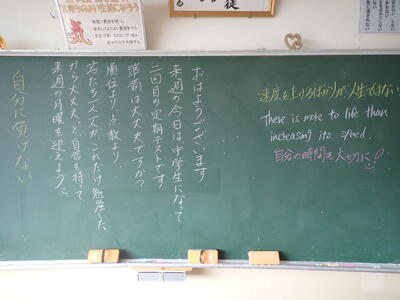 おはようございます
来週の今日は中学生になって
二回目の定期テストです。
準備は大丈夫ですか？
順位より点数より
君たち一人一人がこれだけ勉強した
だから大丈夫、と自信を持って
来週の月曜を迎えよう。
自分に負けない
速度を上げるばかりが、人生ではない
There is more to life than
increasing its speed.
自分の時間を大切に！
気
徒